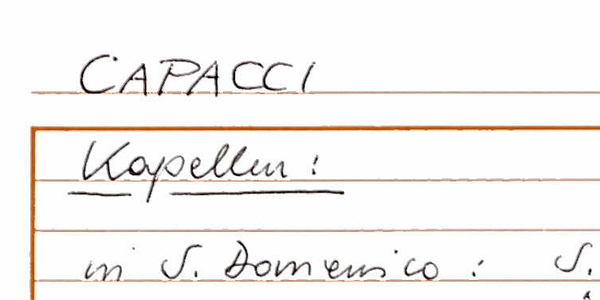 CAPACCI
Kapellen:
in S. Domenico: S.